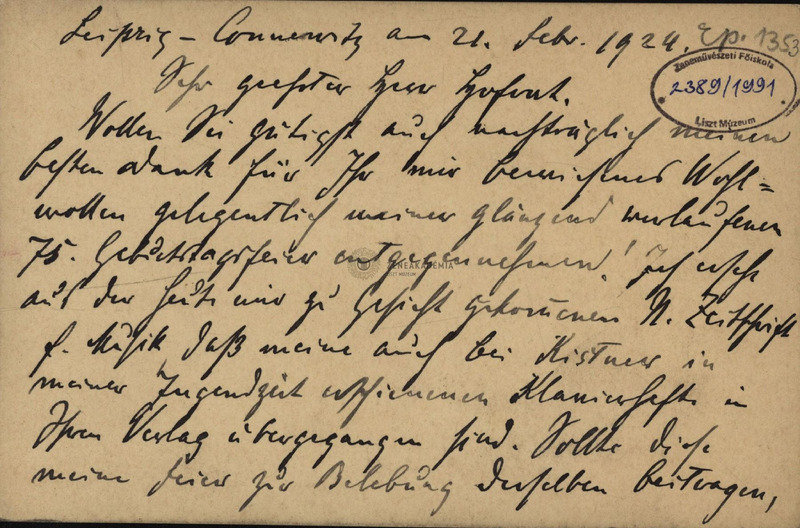 Leipzig – Connewitz am 21. Febr. 1924.
Ep. 1353
Zeneművészeti Főiskola
2389/1991
Liszt Múzeum
Sehr geehrter Herr Hofrat.
Wollen Sie gütigst auch nachträglich meinen
besten Dank für Ihr mir bewiesenes Wohl=
wollen gelegentlich meiner glänzend verlaufenen
75. Geburtstagsfeier entgegennehmen! Ich ersehe
ZENEAKADÉMIA
LISZT MÚZEUM
aus der heute mir zu Gesicht gekommenen N. Zeitschrift
f. Musik, daß meine auch bei Kistner in
meiner Jugendzeit erschienenen Klavierhefte in
Ihren Verlag übergegangen sind. Sollte diese
meine Feier zur Belebung derselben beitragen,